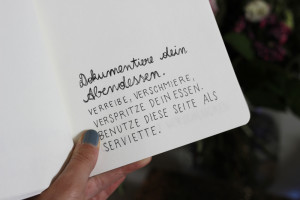 Dokumentiere dein
Abendessen.
VERREIBE, VERSCHMIERE,
VERSPRITZE DEIN ESSEN.
BENUTZE DIESE SEITE ALS
SERVIETTE.